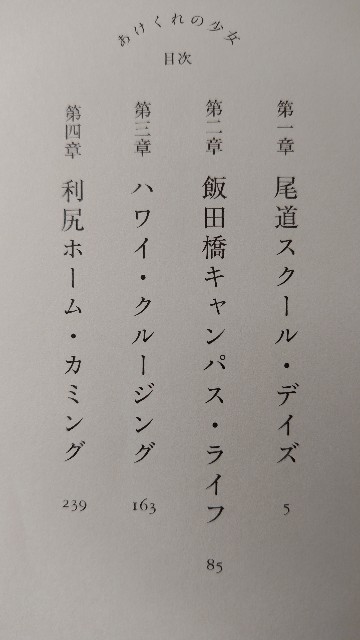 あけくれの少女
目次
第一章 尾道スクール・デイズ 5
第二章 飯田橋キャンパス・ライフ 85
第三章 ハワイ・クルージング 163
第四章 利尻ホーム・カミング 239